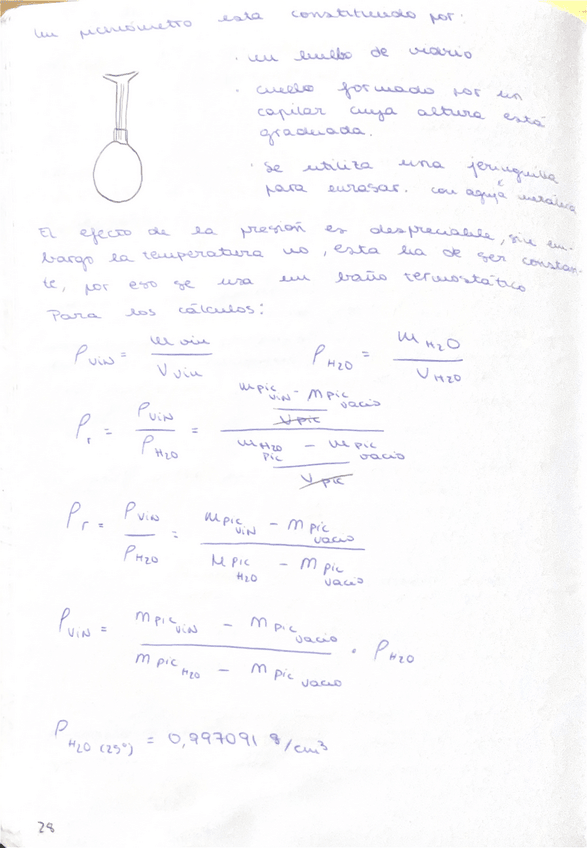 Un picnómetro esta constituido por:
· un bulbo de vidrio
· cuello formado por un
capilar cuya altura está
graduada.
· Se utiliza una jeringuilla
para enrasar. con aguja metálica
El efecto de la presión es despreciable, sin em-
bargo la temperatura no, esta ha de ser constan-
te, por eso se usa un baño termostático
Para los cálculos:
ρ vin = m vin / V vin    ρ H2O = m H2O / V H2O
ρr = ρ vin / ρ H2O = ((m pic vin - m pic vacio) / V pic) / ((m H2O pic - m pic vacio) / V pic)
ρr = ρ vin / ρ H2O = (m pic vin - m pic vacio) / (m pic H2O - m pic vacio)
ρ vin = (m pic vin - m pic vacio) / (m pic H2O - m pic vacio) · ρ H2O
ρ H2O (25°) = 0,997091 g/cm³
28